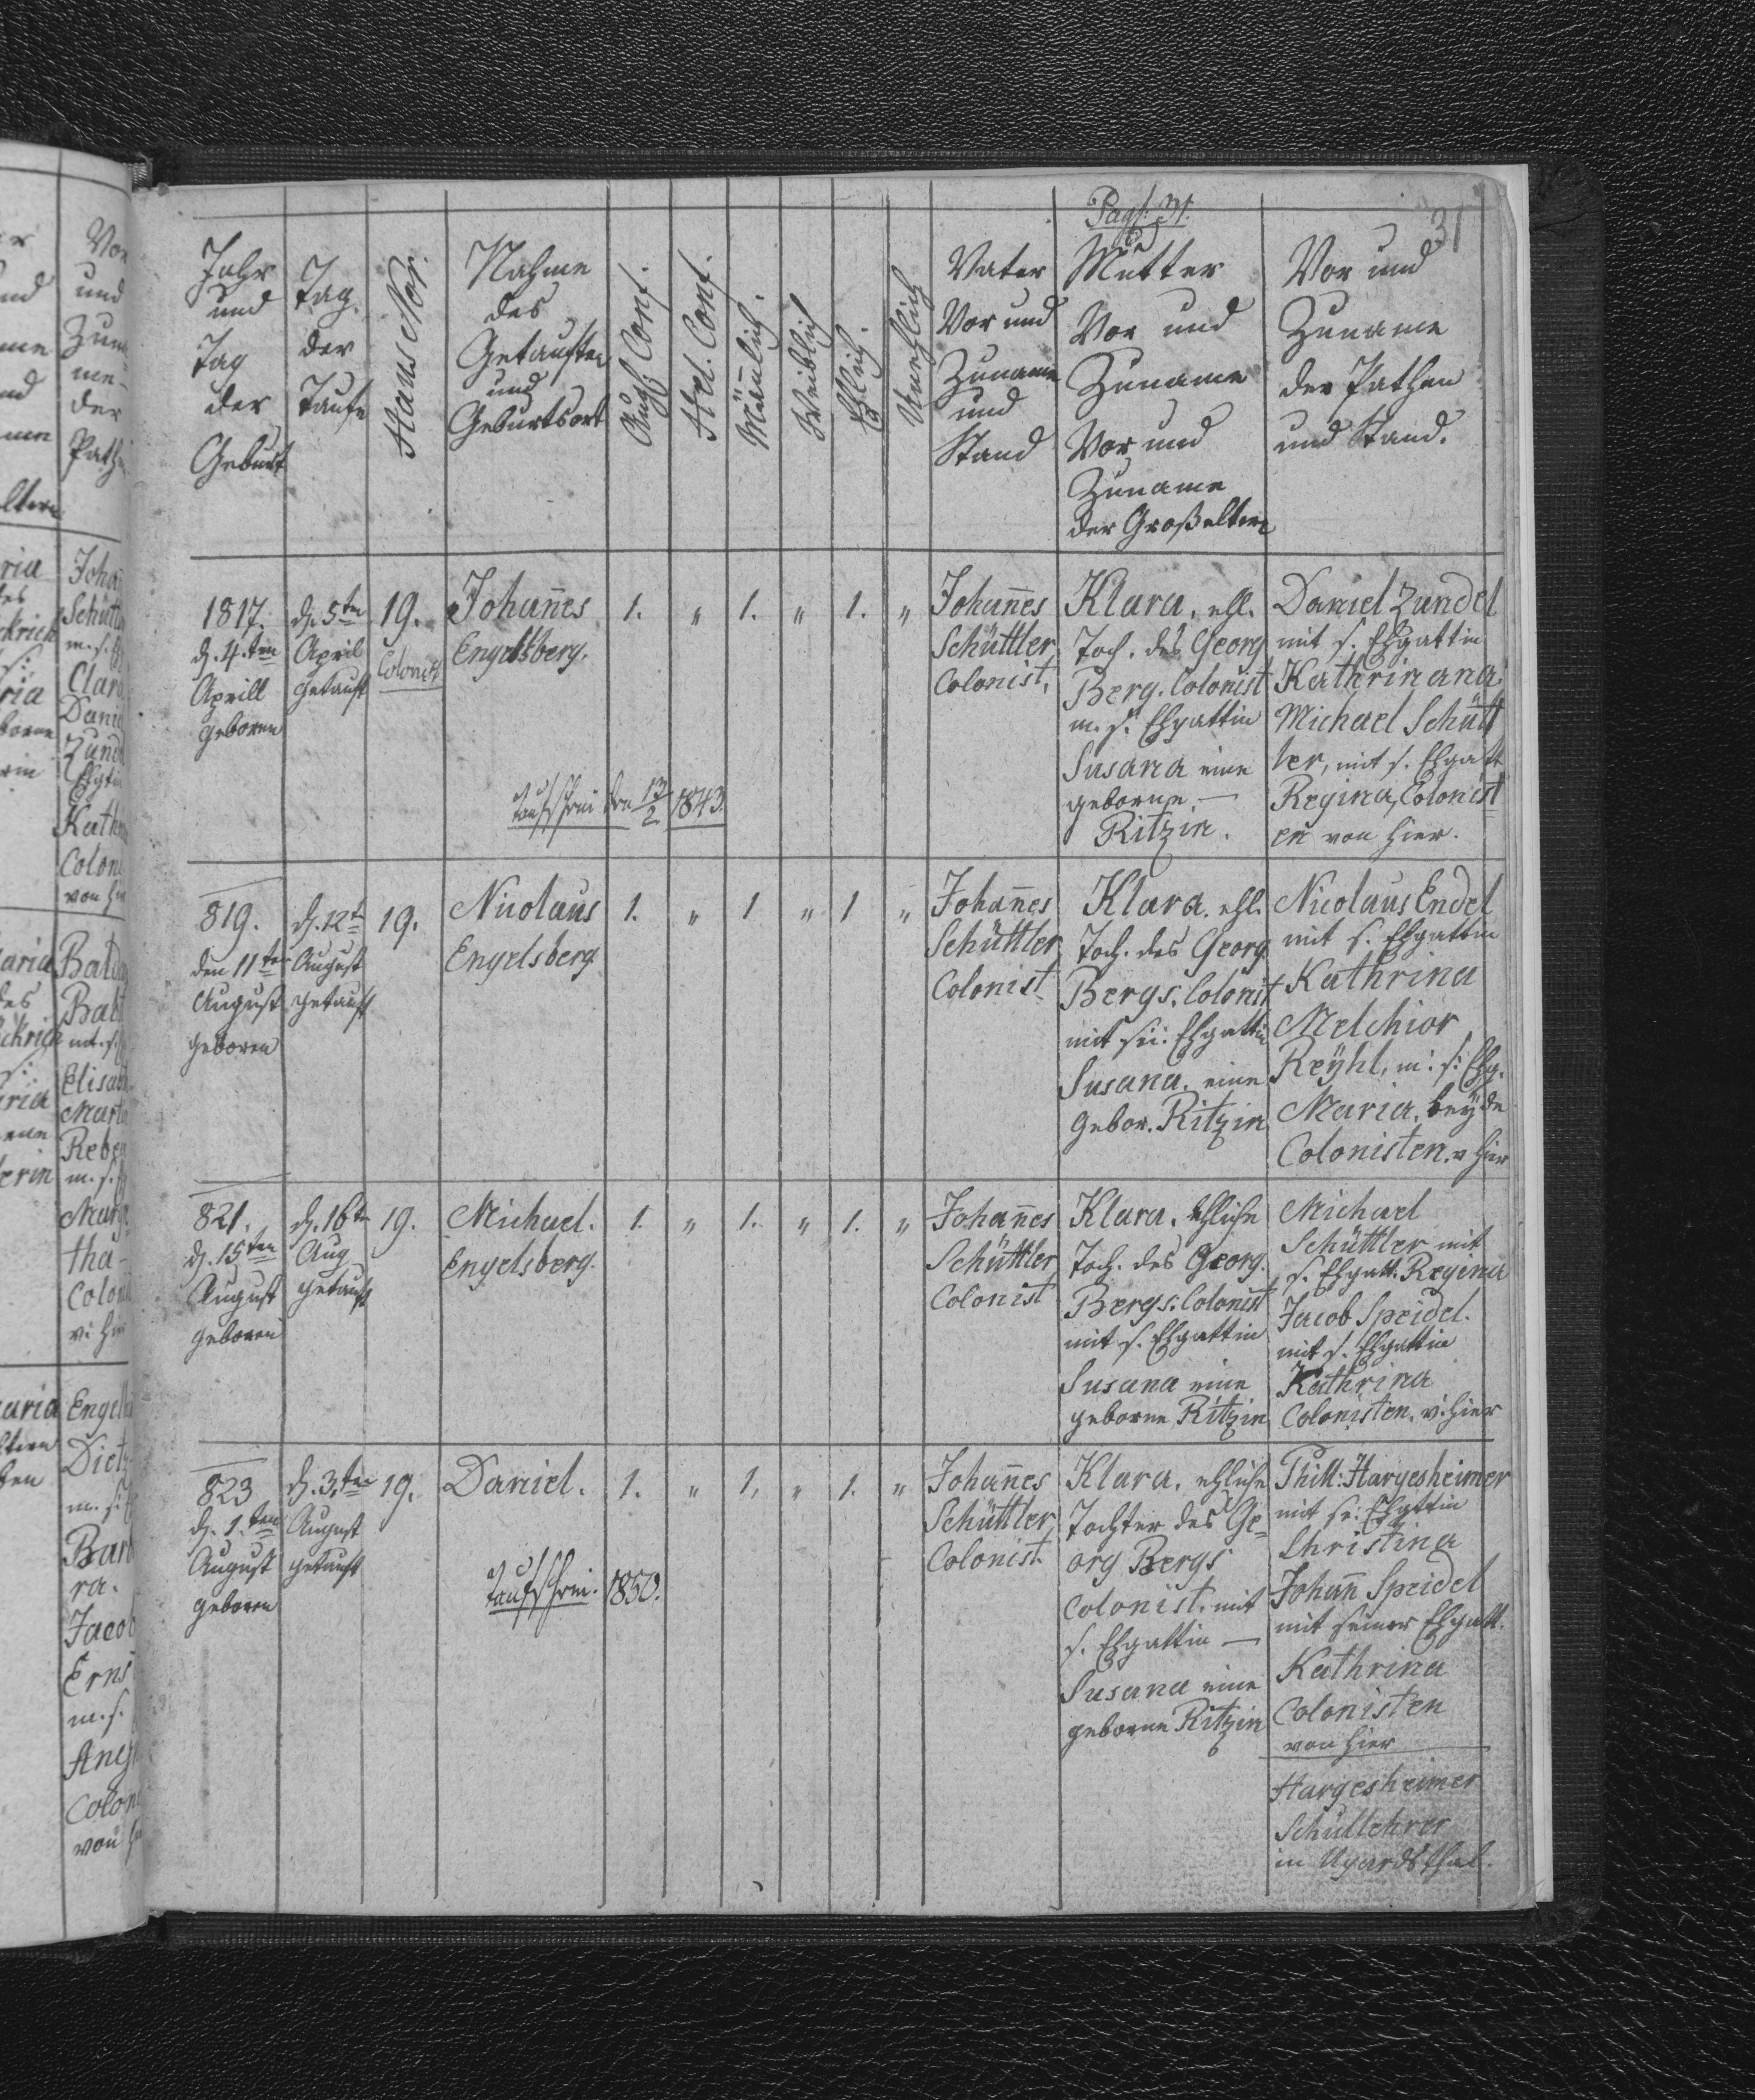 Pag: 31.
31
Jahr
und
Tag
der
Geburt
Tag
der
Taufe
Haus Nor.
Nahme
des
Getauften
und
Geburtsort
Augs. Conf.
Hel. Conf.
Mänlich.
Weiblich
Ehlich.
Unehlich
Vater
Vor und
Zuname
und
Stand
Mutter
Vor und
Zuname
Vor und
Zuname
der Großeltern
Vor und
Zuname
der Pathen
und Stand.
1817.
d. 4.ten
Aprill
geboren
d. 5ten
April
getauft
19.
Colonist
Johan̄es
Engelsberg.
1. " 1. " 1. "
Taufschein den 13/2 1843.
Johan̄es
Schüttler
Colonist.
Klara, ehl.
Toch. des Georg
Berg. Colonist
m. s. Ehgattin
Susana eine
geborne –
Ritzin.
Daniel Zundel
mit s. Ehgattin
Kathrinana
Michael Schütt
ler, mit s. Ehgatt
Regina, Colonist
en von hier.
819.
den 11ten
August
geboren
d. 12t
August
getauft
19.
Nicolaus
Engelsberg
1. " 1 " 1 "
Johan̄es
Schüttler
Colonist
Klara. ehl.
Toch. des Georg
Bergs. Colonist
mit sei. Ehgattin
Susana. eine
Gebor. Ritzin
Nicolaus Endel
mit s. Ehgattin
Kathrina
Melchior
Reÿhl, m: s: Ehg.
Maria, beÿde
Colonisten. v hier
821.
d. 15ten
August
geboren
d. 16ten
Aug
getauft
19.
Michael.
Engelsberg.
1. " 1. " 1. "
Johan̄es
Schüttler
Colonist
Klara. ehliche
Toch. des Georg.
Bergs. Colonist
mit s. Ehgattin
Susana eine
geborne Ritzin
Michael
Schüttler mit
s. Ehgatt. Regina
Jacob Speidel.
mit s. Ehgattin
Kathrina
Colonisten. v: hier
823
d. 1.ten
August
geboren
d. 3.ten
August
getauft
19.
Daniel.
1. " 1. " 1. "
Taufschein. 1850.
Johan̄es
Schüttler
Colonist.
Klara, ehliche
Tochter des Ge=
org Bergs
Colonist. mit
s. Ehgattin –
Susana eine
geborne Ritzin
Phill: Hargesheimer
mit se: Ehgattin
Christina
Johan̄ Speidel
mit seiner Ehgatt.
Kathrina
Colonisten
von hier
Hargesheimer
Schullehrer
in Ugardsthal.